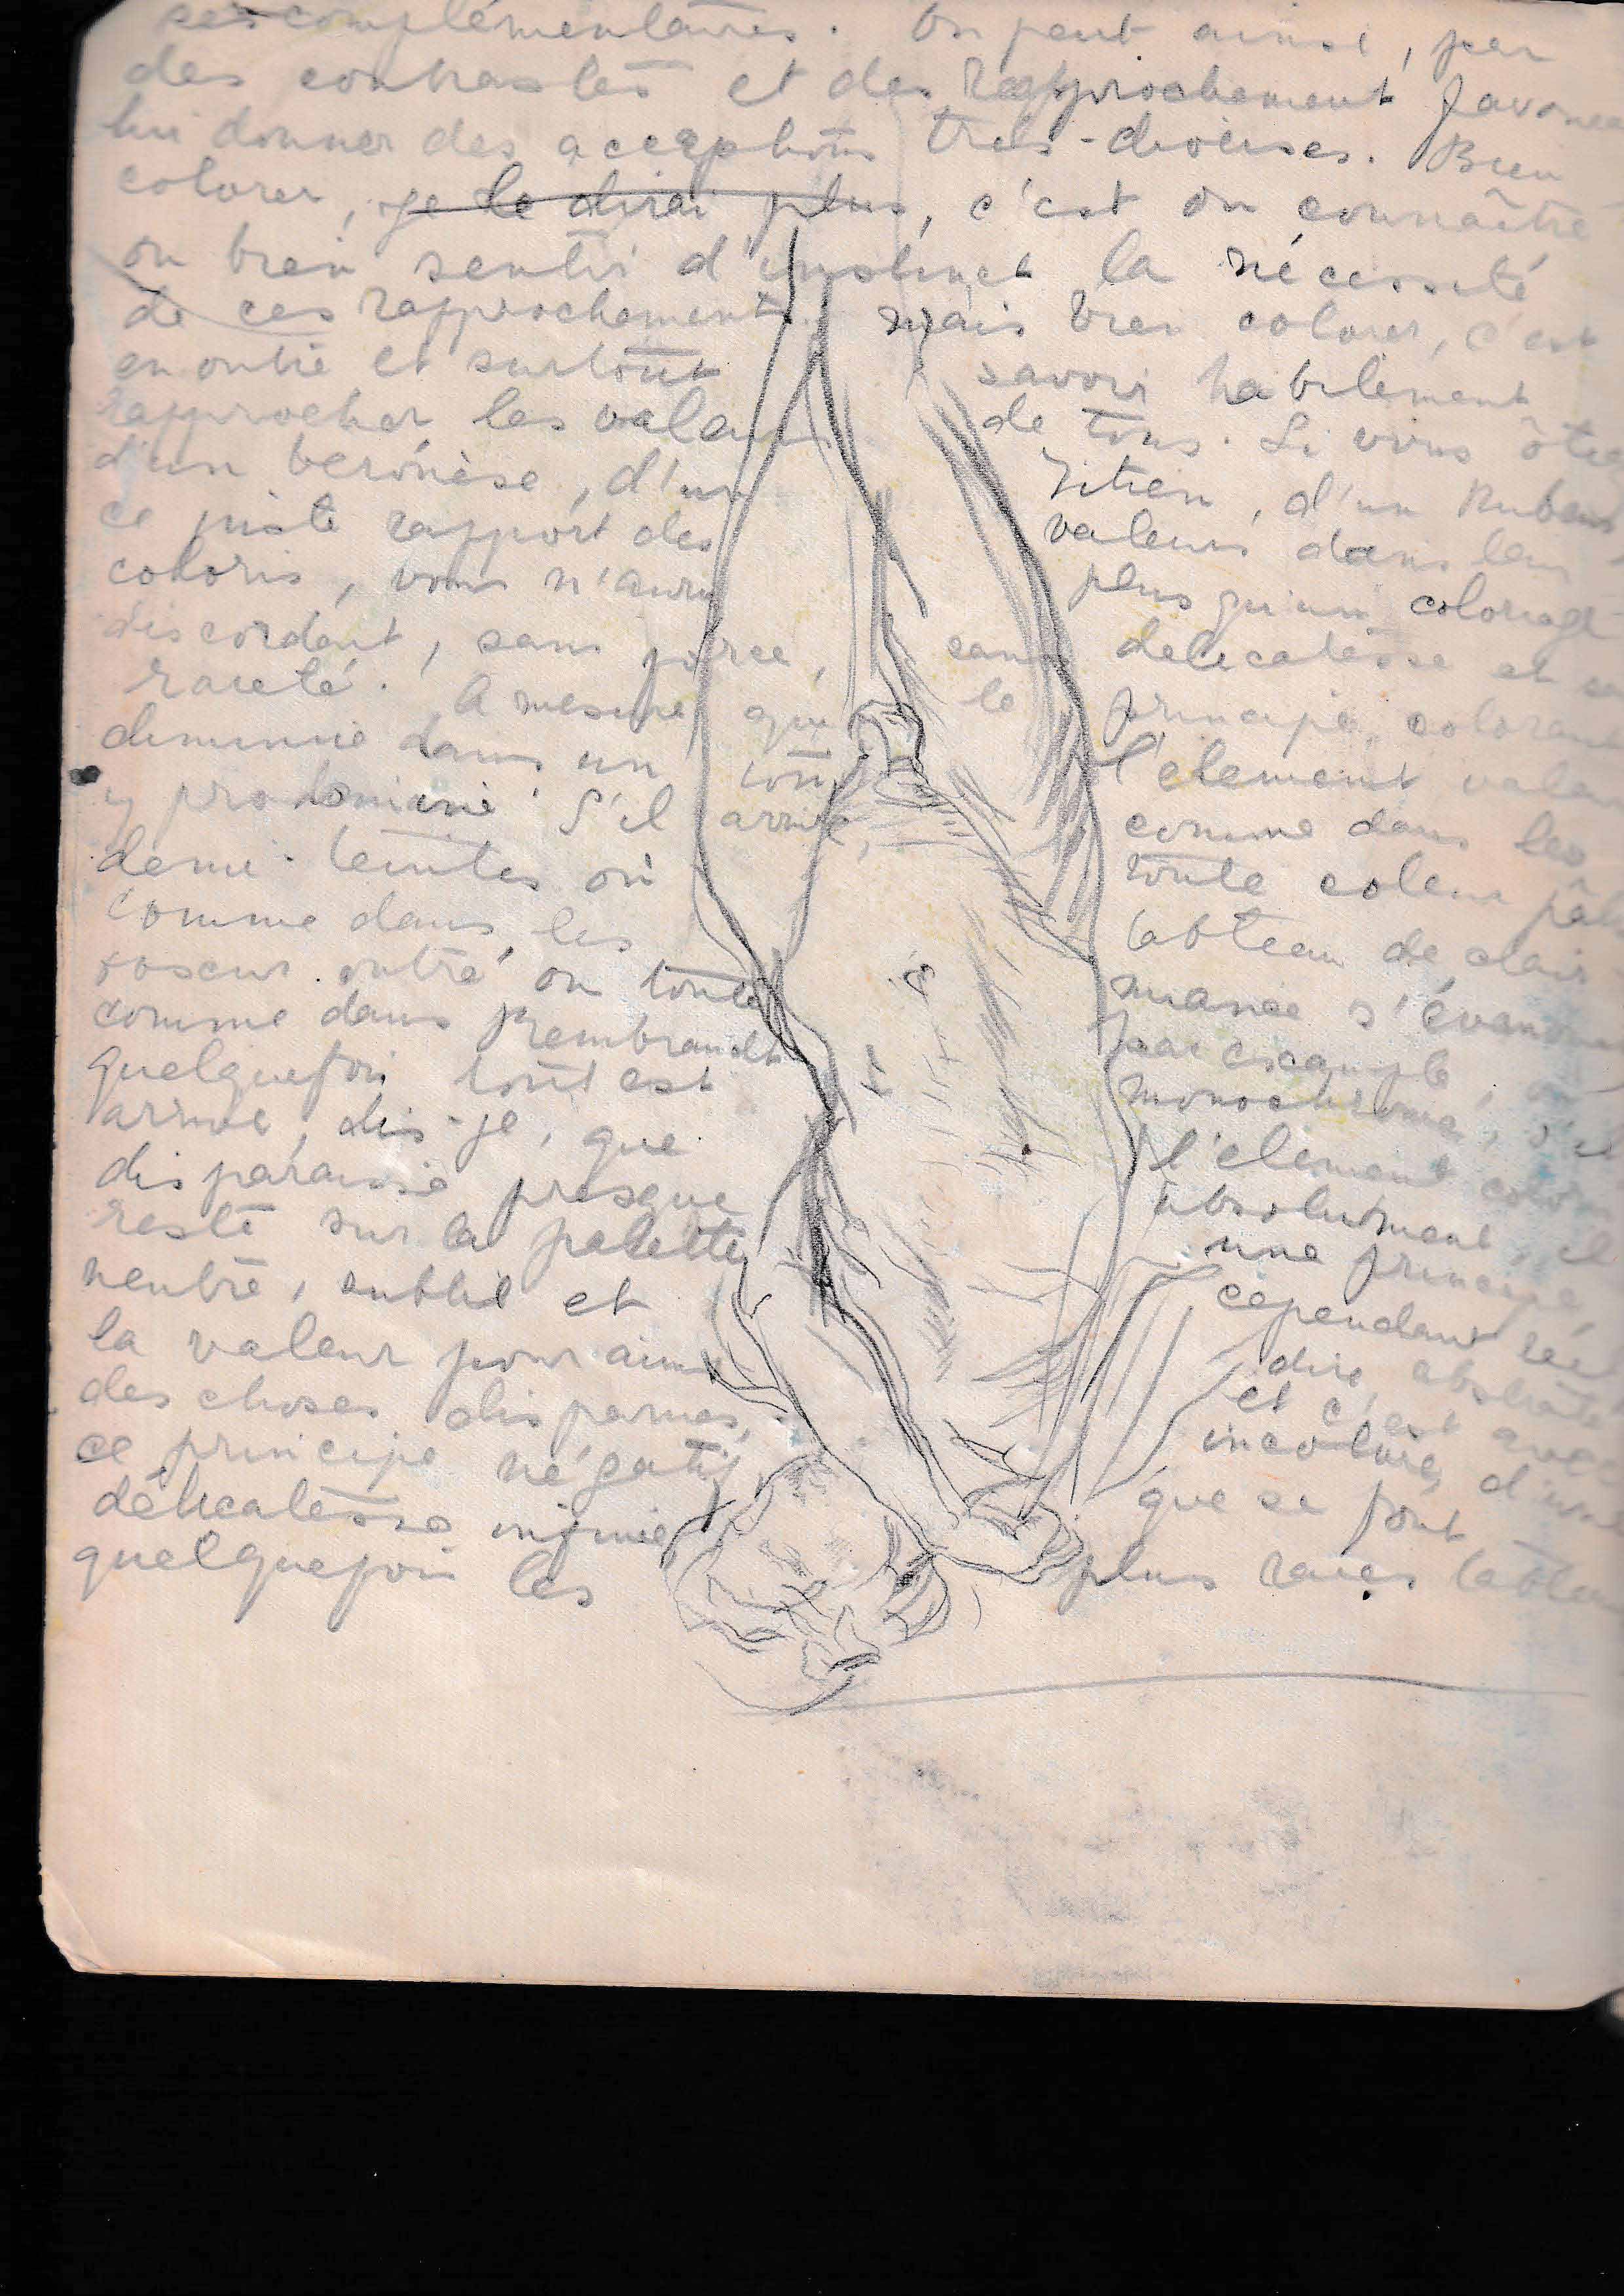 ses complémentaires. On peut ainsi, par
des contrastes et des rapprochement favorab
lui donner des acceptions très-diverses. Bien
colorer, je le dirai plus, c'est ou connaître
ou bien sentir d'instinct la nécessité
de ces rapprochements mais bien colorer, c'est
en outre et surtout savoir habilement
rapprocher les valeurs de tons. Si vous ôtez
d'un Veronèse, d'un Titien, d'un Rubens
ce juste rapport des valeurs dans leur
coloris, vous n'aurez plus qu'un coloriage
discordant, sans force, sans délicatesse et sa
rareté. A mesure que le principe colorant
diminue dans un ton l'élément valeur
y prédomine. S'il arrive, comme dans les
demi-teintes où toute couleur pâl
comme dans les tableau de clair
obscur outré où toute nuance s'évano
comme dans rembrandt par exemple
quelquefois tout est monochrome, s'il
arrive, dis-je, que l'élément color
disparaisse presque absolument, il
reste sur la palette une principe
neutre, subtil et cependant réel
la valeur pour ainsi dire abstraite
des choses disparues, et c'est avec
ce principe négatif, incolore, d'une
délicatesse infinie que se font
quelquefois les plus rares tableau